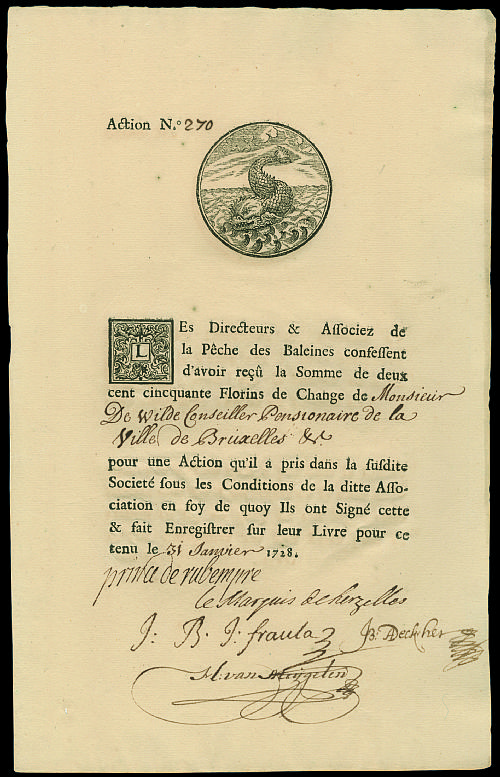 Action N.º 270
LEs Directeurs & Aſſociez de
la Pêche des Baleines confeſſent
d'avoir reçû la Somme de deux
cent cincquante Florins de Change de Monsieur
De Wilde Conseiller Pensionaire de la
Ville de Bruxelles &c
pour une Action qu'il a pris dans la ſuſdite
Societé ſous les Conditions de la ditte Aſſo-
ciation en foy de quoy Ils ont Signé cette
& fait Enregiſtrer ſur leur Livre pour ce
tenu le 31 Janvier 1728.
prince de rubempre
le Marquis de herzelles
J: B. J: fraula
J B: Deckher